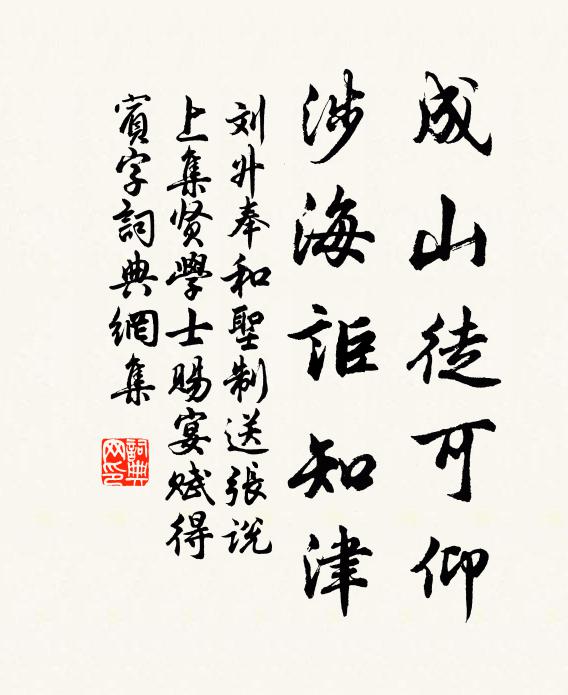 成山徒可仰
涉海詎知津
刘升奉和聖制送張说
上集贤學士賜宴赋得
賓字詞典網集
詞典
网印